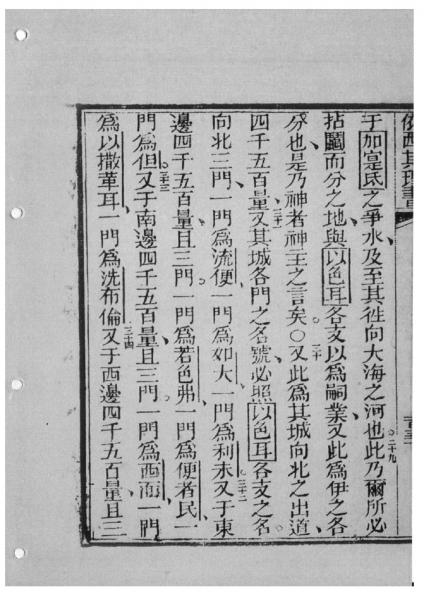 于加寔氐之爭水及至其徃向大海之河也二十九此乃爾所必
拈鬮而分之地與以色耳各支以爲嗣業又此爲伊之各
分也是乃神者神主之言矣○三十又此爲其城向北之出道
四千五百量三十一又其城各門之名號必照以色耳各支之名
向北三門一門爲流便一門爲如大一門爲利未三十二又于東
邊四千五百量且三門一門爲若色弗一門爲便者民一
門爲但又于南邊四千五百量且三門一門爲西面一門
爲以撒革耳一門爲洗布倫三十四又于西邊四千五百量且三